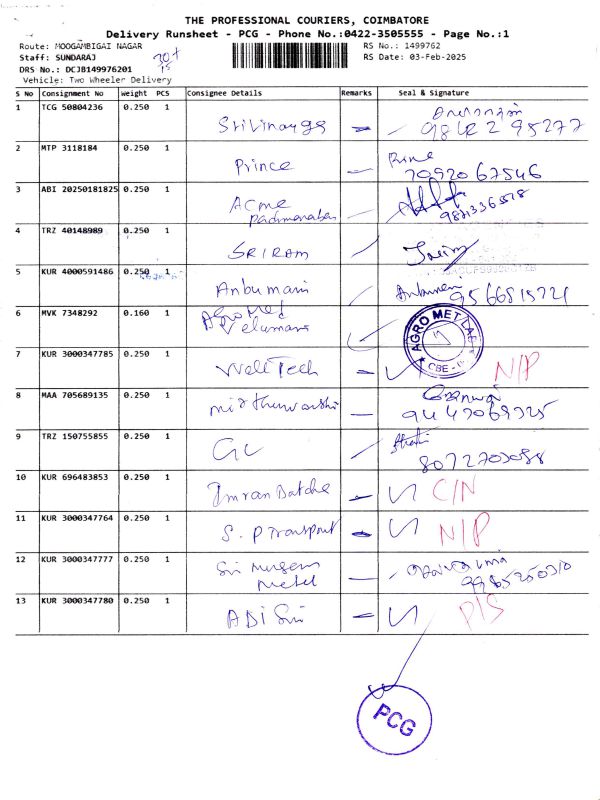 THE PROFESSIONAL COURIERS, COIMBATORE
Delivery Runsheet - PCG - Phone No.:0422-3505555 - Page No.:1
Route: MOOGAMBIGAI NAGAR
RS No.: 1499762
Staff: SUNDARAJ
RS Date: 03-Feb-2025
DRS No.: DCJB149976201
Vehicle: Two Wheeler Delivery
S No Consignment No Weight PCS Consignee Details Remarks Seal & Signature
1 TCG 50804236 0.250 1
2 MTP 3118184 0.250 1 Prince
7092067546
3 ABI 20250181825 0.250 1 ACme
Padmanaban
4 TRZ 40148989 0.250 1 SRIRAM
5 KUR 4000591486 0.250 1 Anbumani
9566815721
6 MVK 7348292 0.160 1 Velumani
AGRO MET
CBE
7 KUR 3000347785 0.250 1 Well Tech N/P
8 MAA 705689135 0.250 1
9 TRZ 150755855 0.250 1
10 KUR 696483853 0.250 1 Imran C/N
11 KUR 3000347764 0.250 1 S. P Transport N/P
12 KUR 3000347777 0.250 1 Sri
Metel
13 KUR 3000347780 0.250 1 ADI Sri P/S
PCG